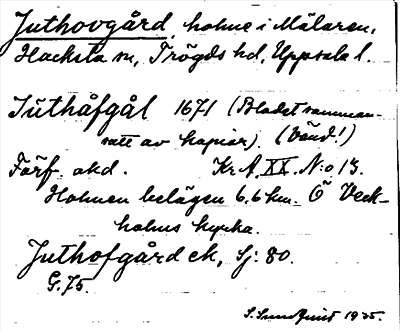 Juthovgård, holme i Mälaren,
Hacksta sn, Trögds hd, Uppsala l.
Iuthåfgål 1671 (Bladet samman-
satt av kopior). (Vänd!)
Förf. okd. Kr A XX. N:o 13.
Holmen belägen 6.6 km. Ö Veck-
holms kyrka.
Juthofgård ek, Sj: 80.
G. 75.
S. Sundquist 1935.